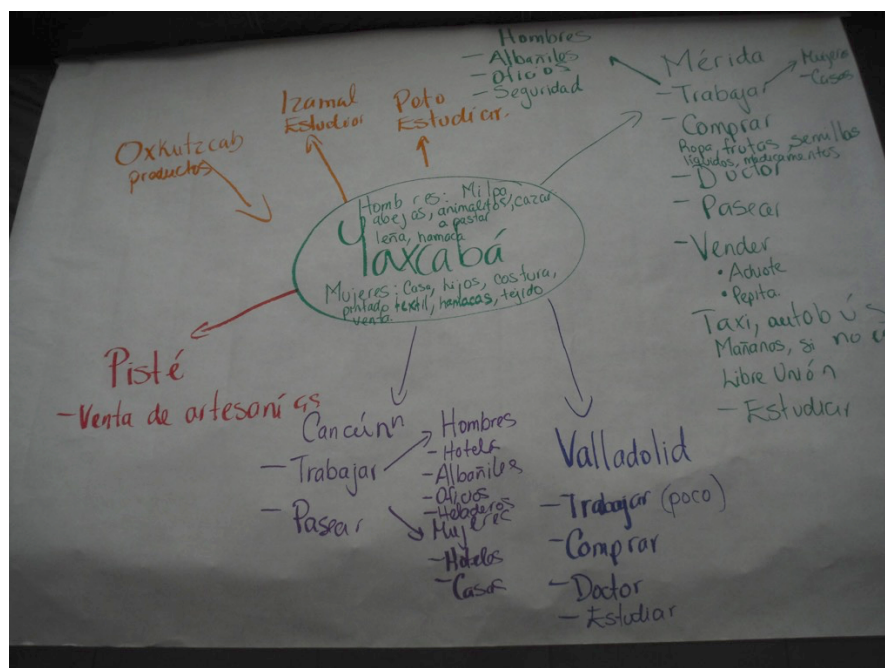 Hombres
- Albañiles
- Oficios
- Seguridad
Mérida
- Trabajar
Mujeres
- Casas
- Comprar
Ropa, frutas, semillas
líquidos, medicamentos
- Doctor
- Pasear
- Vender
• Achiote
• Pepita
Taxi, autobús
Mañanas, si no
Libre Unión
- Estudiar
Izamal
Estudiar
Peto
Estudiar.
Oxkutzcab
productos
Hombres: Milpa,
abejas, animalitos, cazar
a pastar
leña, hamaca
Yaxcabá
Mujeres: Casa, hijos, costura,
pintado textil, hamacas, tejido
venta
Pisté
- Venta de artesanías
Cancúnn
- Trabajar
- Pasear
Hombres
- Hotels
- Albañiles
- Oficios
- Heladeros
Mujerec
- Hoteles
- Casas
Valladolid
- Trabajar (poco)
- Comprar
- Doctor
- Estudiar